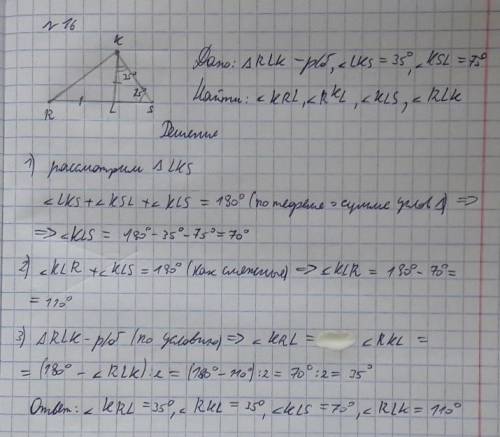 № 16
K
35°
75°
R L S
Дано: △RLK - р/б, ∠LKS = 35°, ∠KSL = 75°
Найти: ∠KRL, ∠RKL, ∠KLS, ∠RLK
Решение
1) рассмотрим △LKS
∠LKS + ∠KSL + ∠KLS = 180° (по теореме о сумме углов △) =>
=> ∠KLS = 180° - 35° - 75° = 70°
2) ∠KLR + ∠KLS = 180° (как смежные) => ∠KLR = 180° - 70° =
= 110°
3) △RLK - р/б (по условию) => ∠KRL = ∠RKL =
= (180° - ∠RLK) : 2 = (180° - 110°) : 2 = 70° : 2 = 35°
Ответ: ∠KRL = 35°, ∠RKL = 35°, ∠KLS = 70°, ∠RLK = 110°